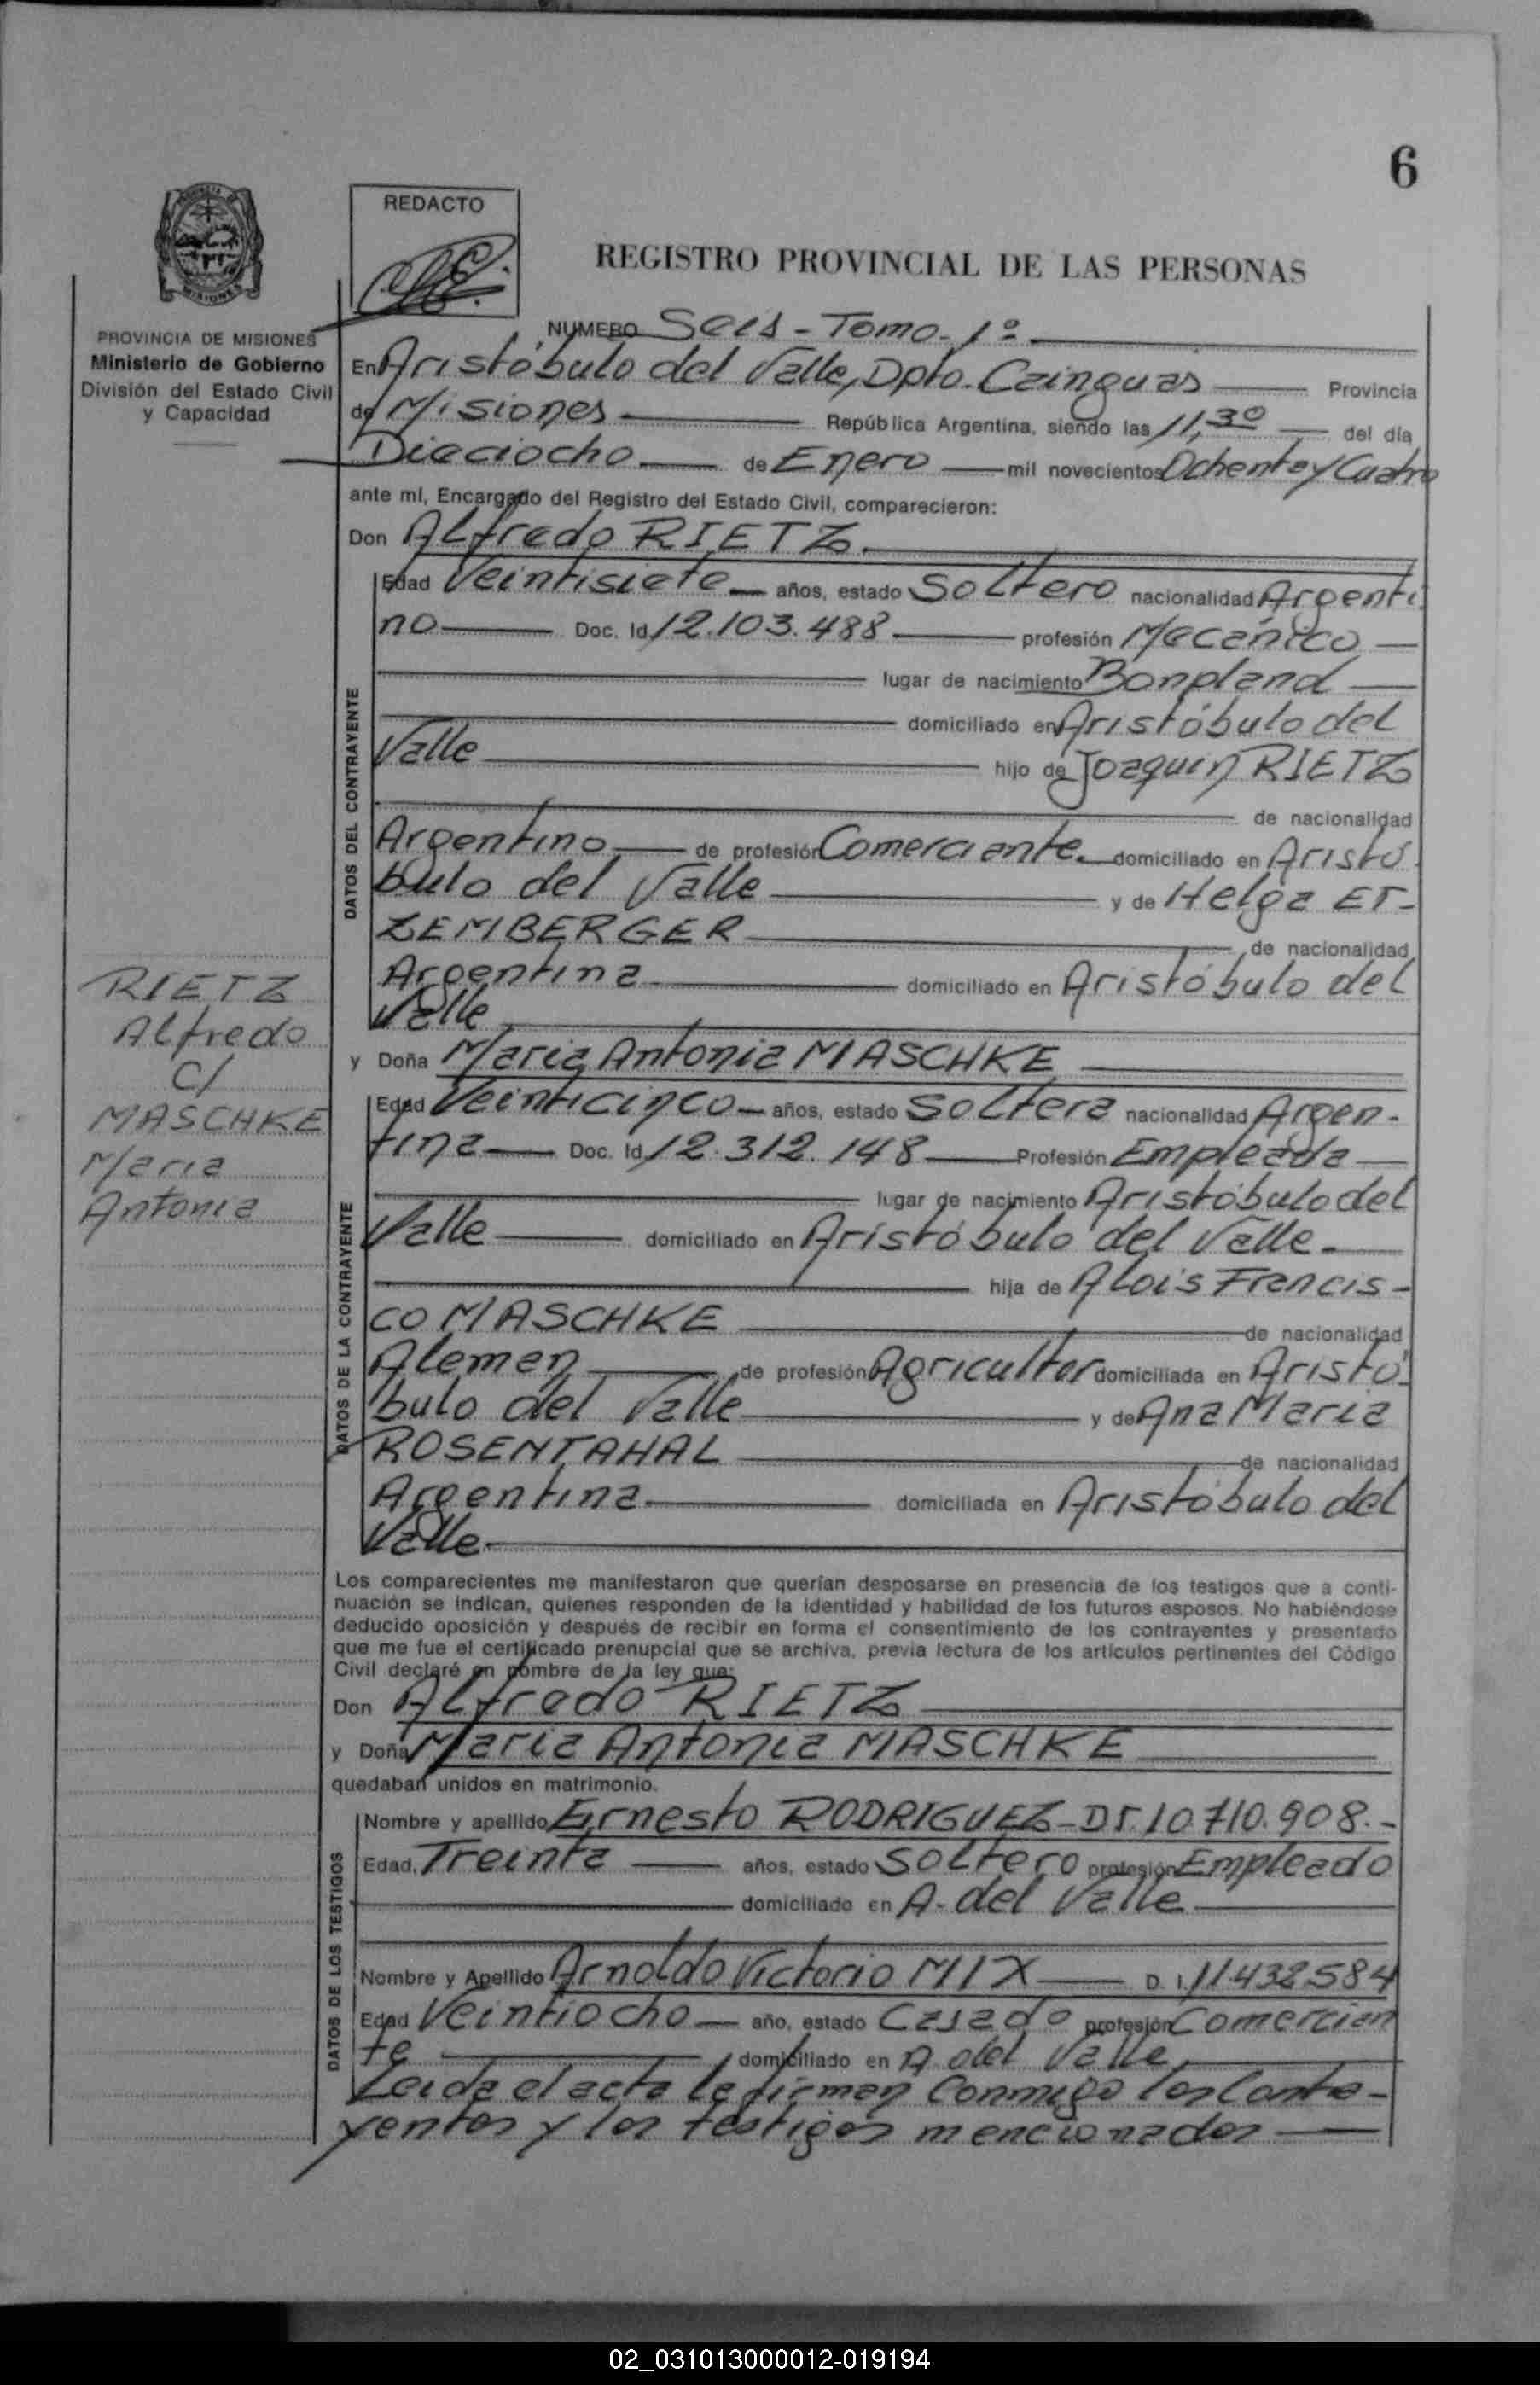 6
REDACTO
REGISTRO PROVINCIAL DE LAS PERSONAS
PROVINCIA DE MISIONES
Ministerio de Gobierno
División del Estado Civil
y Capacidad
NUMERO Seis - Tomo - 1º
En Aristóbulo del Valle, Dpto. Cainguas Provincia
de Misiones República Argentina, siendo las 11,30 del día
Dieciocho de Enero mil novecientos Ochenta y Cuatro
ante mI, Encargado del Registro del Estado Civil, comparecieron:
Don Alfredo RIETZ.
DATOS DEL CONTRAYENTE
Edad Veintisiete años, estado Soltero nacionalidad Argenti
no Doc. Id 12.103.488 profesión Mecánico
lugar de nacimiento Bonpland
domiciliado en Aristóbulo del
Valle hijo de Joaquin RIETZ
de nacionalidad
Argentino de profesión Comerciante domiciliado en Aristó-
bulo del Valle y de Helga ET-
ZEMBERGER de nacionalidad
Argentina domiciliado en Aristóbulo del
Valle
RIETZ
Alfredo
C/
MASCHKE
Maria
Antonia
y Doña Maria Antonia MASCHKE
DATOS DE LA CONTRAYENTE
Edad Veinticinco años, estado Soltera nacionalidad Argen-
tina Doc. Id 12.312.148 Profesión Empleada
lugar de nacimiento Aristóbulo del
Valle domiciliado en Aristóbulo del Valle.
hija de Alois Francis-
co MASCHKE de nacionalidad
Aleman de profesión Agricultor domiciliada en Aristó-
bulo del Valle y de Ana Maria
ROSENTAHAL de nacionalidad
Argentina domiciliada en Aristóbulo del
Valle
Los comparecientes me manifestaron que querían desposarse en presencia de los testigos que a conti-
nuación se indican, quienes responden de la identidad y habilidad de los futuros esposos. No habiéndose
deducido oposición y después de recibir en forma el consentimiento de los contrayentes y presentado
que me fue el certificado prenupcial que se archiva, previa lectura de los artículos pertinentes del Código
Civil declaré en nombre de la ley que:
Don Alfredo RIETZ
y Doña Maria Antonia MASCHKE
quedaban unidos en matrimonio.
DATOS DE LOS TESTIGOS
Nombre y apellido Ernesto RODRIGUEZ - DI. 10.710.908.-
Edad. Treinta años, estado Soltero profesión Empleado
domiciliado en A. del Valle
Nombre y Apellido Arnoldo Victorio MIX D. I. 11438584
Edad Veintiocho año, estado Casado profesión Comercian
te domiciliado en A del Valle
Leida el acta la firman conmigo los Contra-
yentes y los testigos mencionados
02_031013000012-019194